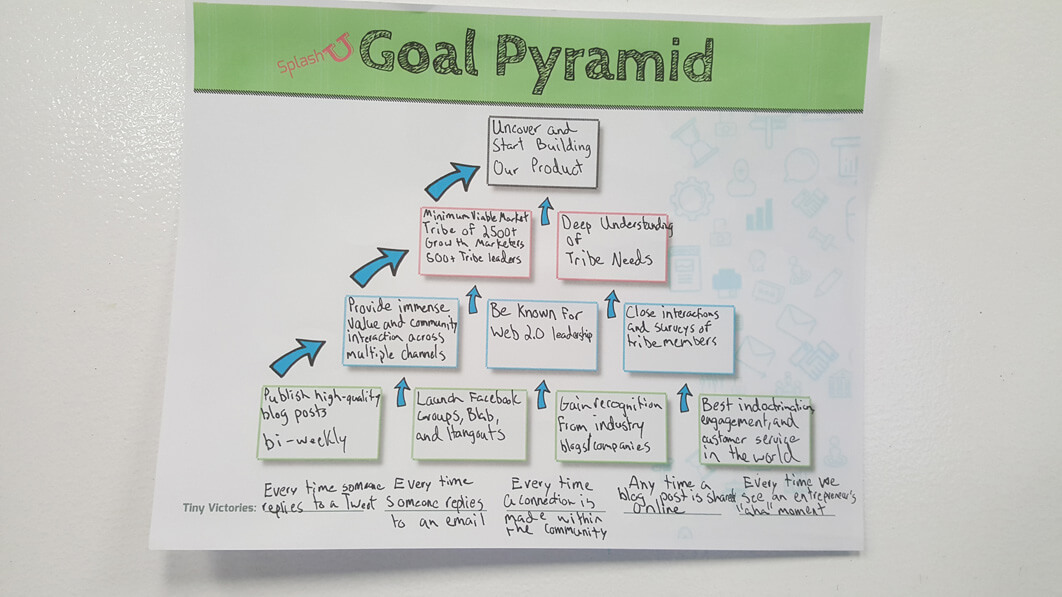 SplashU Goal Pyramid
Uncover and
Start Building
Our Product
Minimum Viable Market
Tribe of 2500+
Growth Marketers
500+ Tribe leaders
Deep Understanding
of
Tribe Needs
Provide immense
Value and community
interaction across
multiple channels
Be Known For
Web 2.0 leadership
Close interactions
and surveys of
tribe members
Publish high-quality
blog posts
bi-weekly
Launch Facebook
Groups, Blab,
and Hangouts
Gain recognition
From industry
blogs/companies
Best indoctrination,
engagement, and
customer service
in the world
Tiny Victories:
Every time someone
replies to a Tweet
Every time
Someone replies
to an email
Every time
a connection is
made within
the community
Any time a
blog post is shared
online
Every time we
see an entrepreneur's
"aha" moment